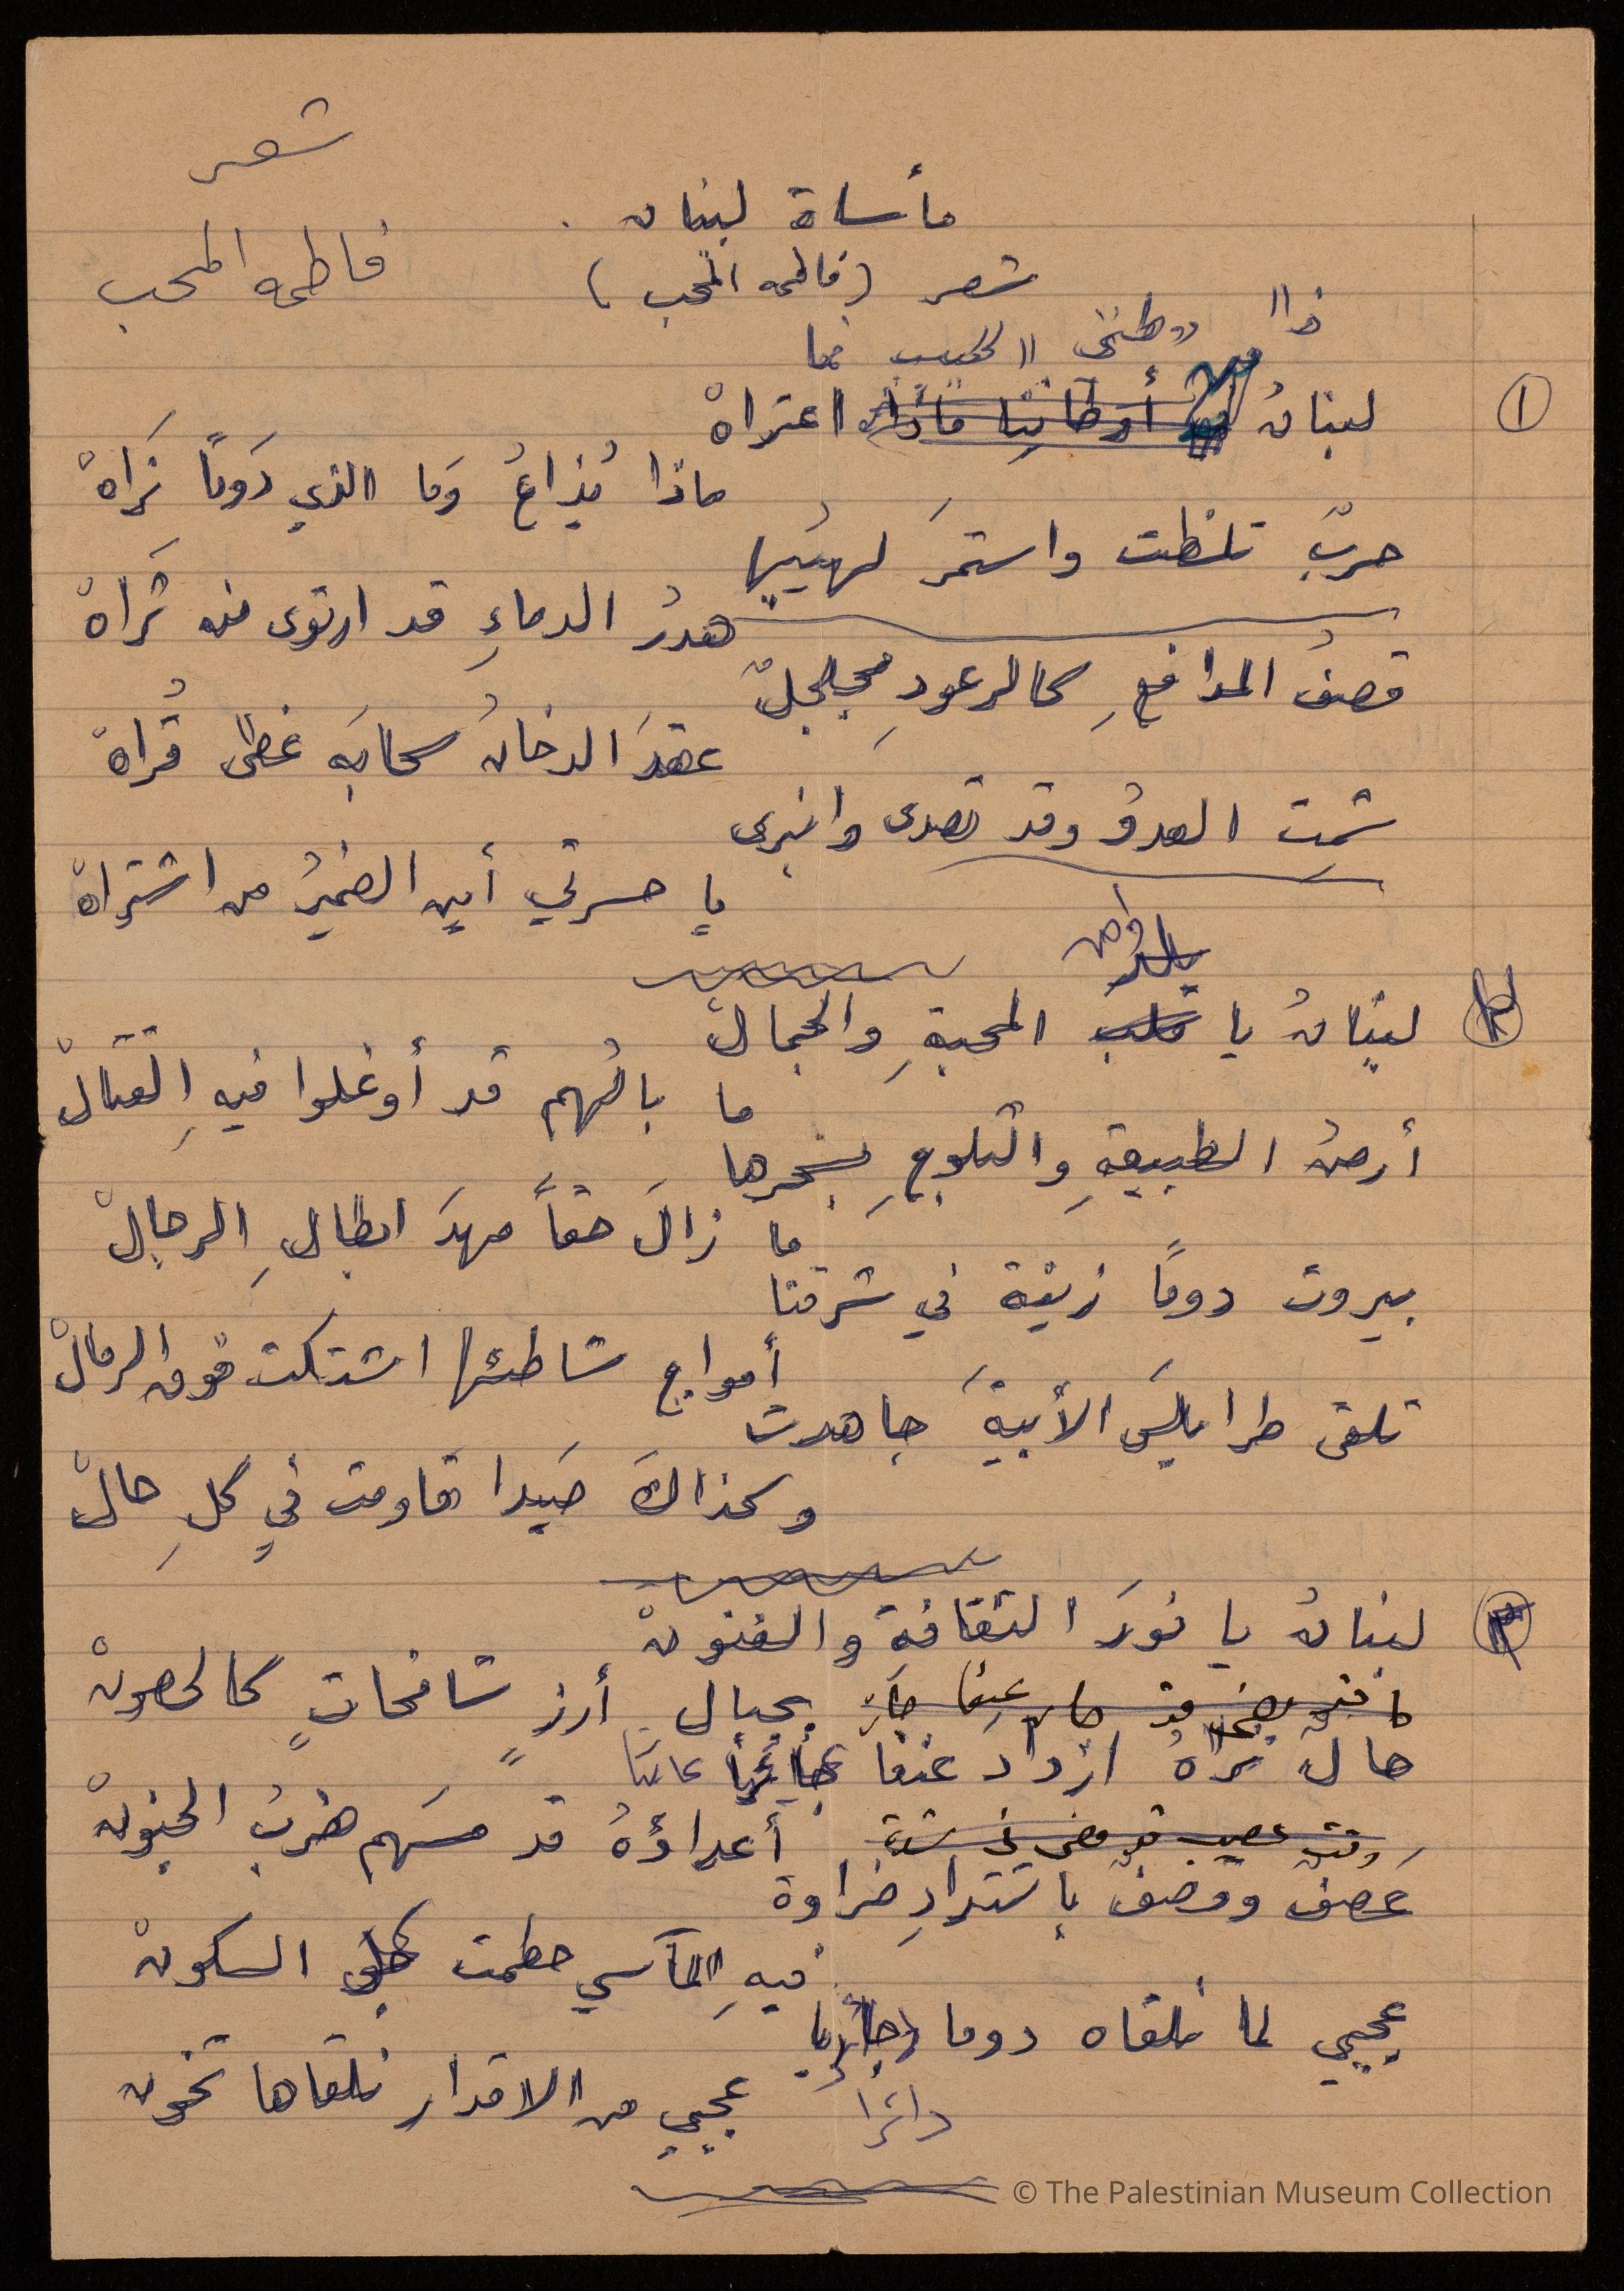 شعر
مأساة لبنان
فاطمه المحب
شعر (فاطمه المحب)
ذا وطني الحبيب فما
① لبنانُ أوطاننا ماذا اعتراهْ
ماذا يُذاعُ وَما الذي دَومًا نَراهْ
حربٌ تلظت واستمرَ لهيبُها
هدرُ الدماءِ قد ارتوى منه ثَراهْ
قصفُ المدافعِ كالرعودِ مجلجلٌ
عقدَ الدخانُ سحابَه غطى قُراهْ
شمِت العدوُ وقد تصدى وانبرى
يا حسرتي أين الضميرُ من اشتراهْ
لبنانُ يا قلب المحبةِ والجمالْ
ما بالُهم قد أوغلوا فيهِ القتالْ
أرضُ الطبيعةِ والثلوجِ بسحرها
ما زالَ حقاً مهدَ ابطالِ الرجالْ
بيروت دومًا زينة في شرقنا
أمواج شاطئها اشتكت فوق الرمالْ
تلقى طرابلسَ الأبيةَ جاهدت
وكذاكَ صَيدا قاومت في كلِ حالْ
③ لبنانُ يا نورَ الثقافةِ والفنونْ
بجبال أرزٍ شامخاتٍ كالحصونْ
حالٌ نراهُ ازداد عنفا عاتيا
وقت عصيب قد مضى في شدة
أعداؤهُ قد مسَهم ضربُ الجنونْ
عَصفٌ وقصفٌ باشتدادِ ضراوة
فيهِ المآسي حطمت كل السكونْ
عجبي لما نلقاه دوما جاريا
دائرا
عجبي من الاقدار نلقاها تخون
© The Palestinian Museum Collection